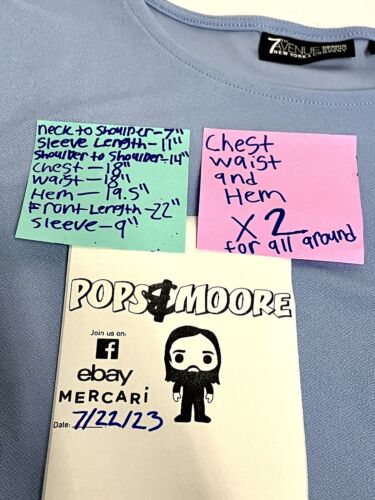 7TH
AVENUE
NEW YORK & COMPANY
neck to Shoulder-7"
Sleeve Length-11"
Shoulder to Shoulder-14"
Chest-18"
waist-18"
Hem-19.5"
Front Length-22"
sleeve-9"
Chest
waist
and
Hem
X2
for all around
POPS & MOORE
Join us on:
f
ebay
MERCARI
Date: 7/22/23